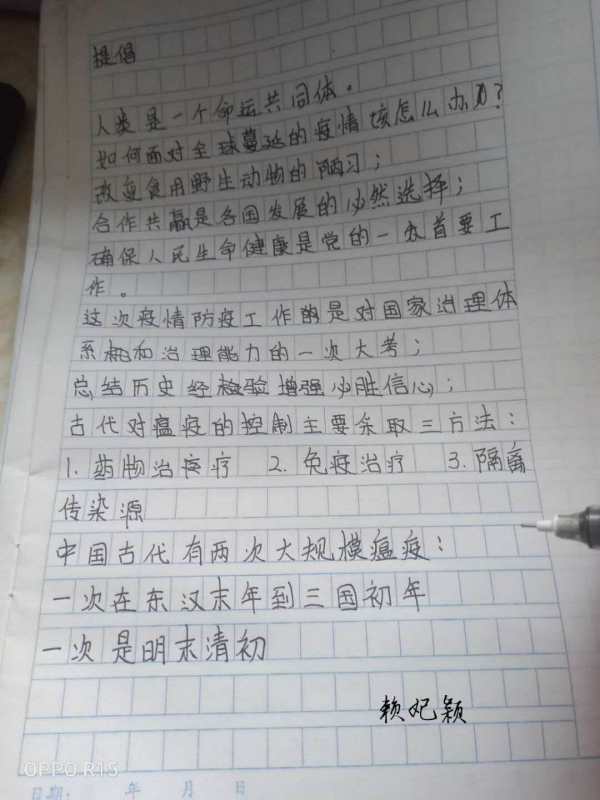 提倡
人类是一个命运共同体。
如何面对全球蔓延的疫情该怎么办?
改变食用野生动物的陋习;
合作共赢是各国发展的必然选择;
确保人民生命健康是党的一次首要工
作。
这次疫情防疫工作的是对国家治理体
系和治理能力的一次大考;
总结历史经检验增强必胜信心;
古代对瘟疫的控制主要采取三方法:
1.药物治疗 2.免疫治疗 3.隔离
传染源
中国古代有两次大规模瘟疫:
一次在东汉末年到三国初年
一次是明末清初
赖妃颖
OPPO R15
日期: 年 月 日